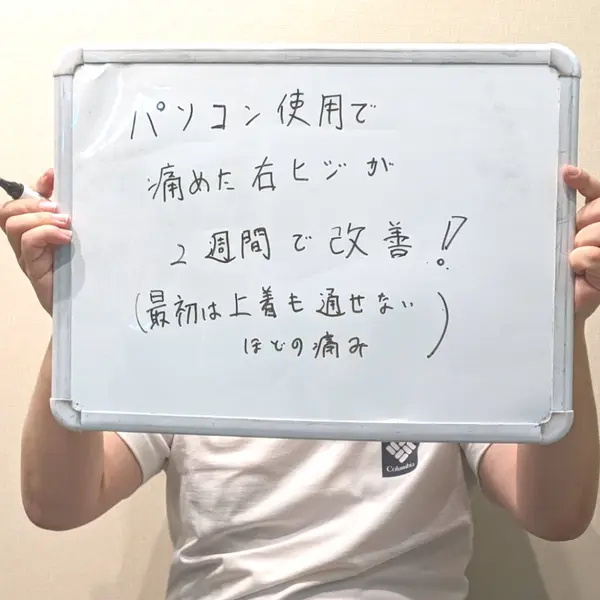 パソコン使用で
痛めた右ヒジが
2週間で改善!?
(最初は上着も通せない
ほどの痛み)
Columbia